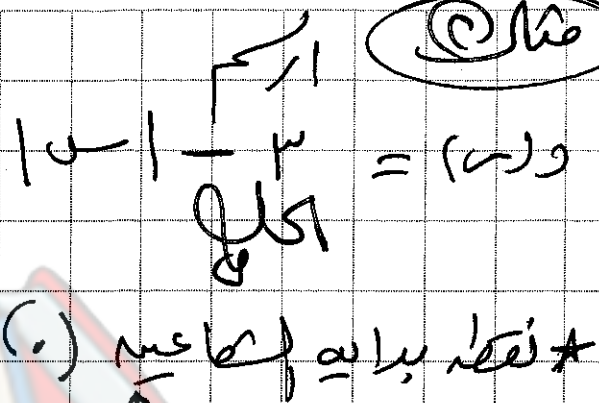 مثال (٢)
ارسم
و(س) = ٣ - |س|
الحل
* نقطة بداية الشعاعين (٠)